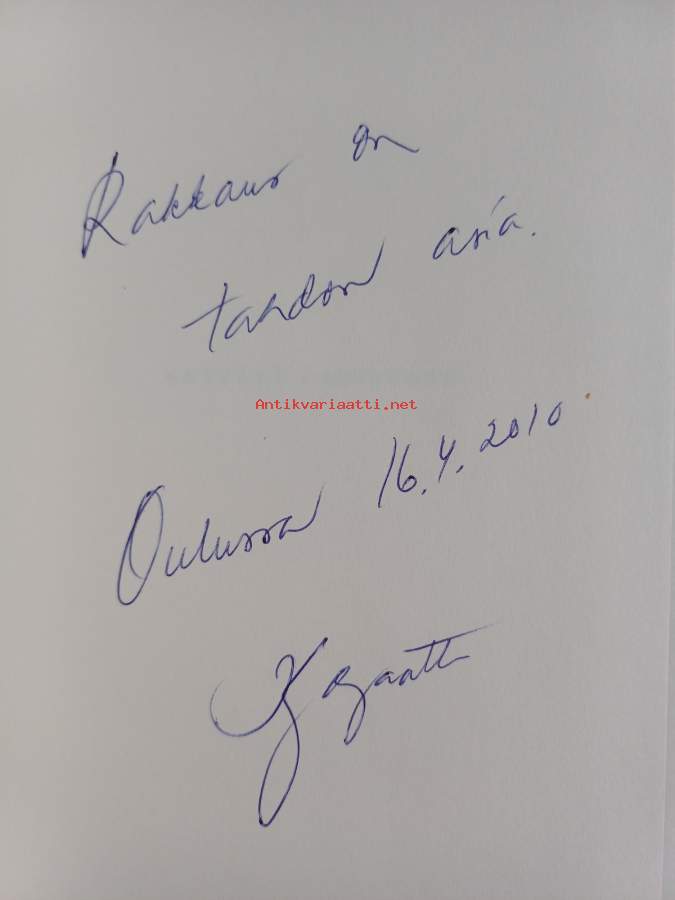 Rakkaus on
tahdon asia.
Antikvariaatti.net
Oulussa 16.4.2010